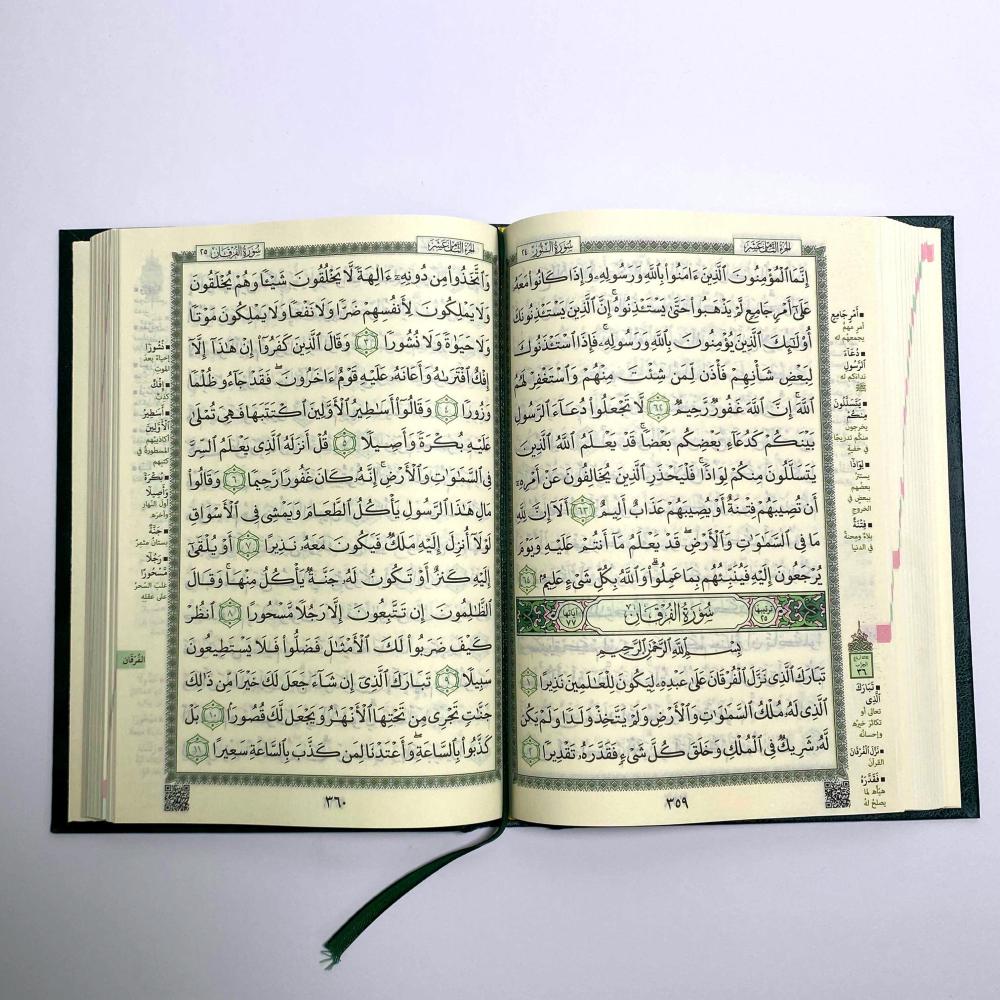 سُورَةُ النُّورِ ٢٤
الجُزْءُ الثَّامِنَ عَشَرَ
إِنَّمَا ٱلْمُؤْمِنُونَ ٱلَّذِينَ ءَامَنُوا۟ بِٱللَّهِ وَرَسُولِهِۦ وَإِذَا كَانُوا۟ مَعَهُۥ
عَلَىٰٓ أَمْرٍ جَامِعٍ لَّمْ يَذْهَبُوا۟ حَتَّىٰ يَسْتَـْٔذِنُوهُ ۚ إِنَّ ٱلَّذِينَ يَسْتَـْٔذِنُونَكَ
أُو۟لَـٰٓئِكَ ٱلَّذِينَ يُؤْمِنُونَ بِٱللَّهِ وَرَسُولِهِۦ ۚ فَإِذَا ٱسْتَـْٔذَنُوكَ
لِبَعْضِ شَأْنِهِمْ فَأْذَن لِّمَن شِئْتَ مِنْهُمْ وَٱسْتَغْفِرْ لَهُمُ
ٱللَّهَ ۚ إِنَّ ٱللَّهَ غَفُورٌ رَّحِيمٌ ٦٢ لَّا تَجْعَلُوا۟ دُعَآءَ ٱلرَّسُولِ
بَيْنَكُمْ كَدُعَآءِ بَعْضِكُم بَعْضًا ۚ قَدْ يَعْلَمُ ٱللَّهُ ٱلَّذِينَ
يَتَسَلَّلُونَ مِنكُمْ لِوَاذًا ۚ فَلْيَحْذَرِ ٱلَّذِينَ يُخَالِفُونَ عَنْ أَمْرِهِۦٓ
أَن تُصِيبَهُمْ فِتْنَةٌ أَوْ يُصِيبَهُمْ عَذَابٌ أَلِيمٌ ٦٣ أَلَآ إِنَّ لِلَّهِ
مَا فِى ٱلسَّمَـٰوَٰتِ وَٱلْأَرْضِ ۖ قَدْ يَعْلَمُ مَآ أَنتُمْ عَلَيْهِ وَيَوْمَ
يُرْجَعُونَ إِلَيْهِ فَيُنَبِّئُهُم بِمَا عَمِلُوا۟ ۗ وَٱللَّهُ بِكُلِّ شَىْءٍ عَلِيمٌۢ ٦٤
ترتيبها ٢٥ سُورَةُ الْفُرْقَانِ آياتها ٧٧
بِسْمِ ٱللَّهِ ٱلرَّحْمَـٰنِ ٱلرَّحِيمِ
تَبَارَكَ ٱلَّذِى نَزَّلَ ٱلْفُرْقَانَ عَلَىٰ عَبْدِهِۦ لِيَكُونَ لِلْعَـٰلَمِينَ نَذِيرًا ١
ٱلَّذِى لَهُۥ مُلْكُ ٱلسَّمَـٰوَٰتِ وَٱلْأَرْضِ وَلَمْ يَتَّخِذْ وَلَدًا وَلَمْ يَكُن
لَّهُۥ شَرِيكٌ فِى ٱلْمُلْكِ وَخَلَقَ كُلَّ شَىْءٍ فَقَدَّرَهُۥ تَقْدِيرًا ٢
أَمْرٍ جَامِعٍ
أمر مهم
يجمعهم له
دُعَآءَ
ٱلرَّسُولِ
نداءكم له
ﷺ
يَتَسَلَّلُونَ
مِنكُمْ
يخرجون
منكم تدريجًا
في خفية
لِوَاذًا
يستتر
بعضهم
ببعض في
الخروج
فِتْنَةٌ
بلاء ومحنة
في الدنيا
الحزب
٣٦
تَبَارَكَ
ٱلَّذِى
تعالى أو
تكاثر خيره
وإحسانه
نَزَّلَ ٱلْفُرْقَانَ
القرآن
فَقَدَّرَهُۥ
هيّأه لما
يصلح له
٣٥٩
الجُزْءُ الثَّامِنَ عَشَرَ
سُورَةُ الفُرْقَانِ ٢٥
وَٱتَّخَذُوا۟ مِن دُونِهِۦٓ ءَالِهَةً لَّا يَخْلُقُونَ شَيْـًٔا وَهُمْ يُخْلَقُونَ
وَلَا يَمْلِكُونَ لِأَنفُسِهِمْ ضَرًّا وَلَا نَفْعًا وَلَا يَمْلِكُونَ مَوْتًا
وَلَا حَيَوٰةً وَلَا نُشُورًا ٣ وَقَالَ ٱلَّذِينَ كَفَرُوٓا۟ إِنْ هَـٰذَآ إِلَّآ
إِفْكٌ ٱفْتَرَىٰهُ وَأَعَانَهُۥ عَلَيْهِ قَوْمٌ ءَاخَرُونَ ۖ فَقَدْ جَآءُو ظُلْمًا
وَزُورًا ٤ وَقَالُوٓا۟ أَسَـٰطِيرُ ٱلْأَوَّلِينَ ٱكْتَتَبَهَا فَهِىَ تُمْلَىٰ
عَلَيْهِ بُكْرَةً وَأَصِيلًا ٥ قُلْ أَنزَلَهُ ٱلَّذِى يَعْلَمُ ٱلسِّرَّ
فِى ٱلسَّمَـٰوَٰتِ وَٱلْأَرْضِ ۚ إِنَّهُۥ كَانَ غَفُورًا رَّحِيمًا ٦ وَقَالُوا۟
مَالِ هَـٰذَا ٱلرَّسُولِ يَأْكُلُ ٱلطَّعَامَ وَيَمْشِى فِى ٱلْأَسْوَاقِ ۙ
لَوْلَآ أُنزِلَ إِلَيْهِ مَلَكٌ فَيَكُونَ مَعَهُۥ نَذِيرًا ٧ أَوْ يُلْقَىٰٓ
إِلَيْهِ كَنزٌ أَوْ تَكُونُ لَهُۥ جَنَّةٌ يَأْكُلُ مِنْهَا ۚ وَقَالَ
ٱلظَّـٰلِمُونَ إِن تَتَّبِعُونَ إِلَّا رَجُلًا مَّسْحُورًا ٨ ٱنظُرْ
كَيْفَ ضَرَبُوا۟ لَكَ ٱلْأَمْثَـٰلَ فَضَلُّوا۟ فَلَا يَسْتَطِيعُونَ
سَبِيلًا ٩ تَبَارَكَ ٱلَّذِىٓ إِن شَآءَ جَعَلَ لَكَ خَيْرًا مِّن ذَٰلِكَ
جَنَّـٰتٍ تَجْرِى مِن تَحْتِهَا ٱلْأَنْهَـٰرُ وَيَجْعَل لَّكَ قُصُورًۢا ١٠ بَلْ
كَذَّبُوا۟ بِٱلسَّاعَةِ ۖ وَأَعْتَدْنَا لِمَن كَذَّبَ بِٱلسَّاعَةِ سَعِيرًا ١١
نُشُورًا
إحياءً بعد
الموت
إِفْكٌ
كذب
أَسَـٰطِيرُ
ٱلْأَوَّلِينَ
أكاذيبهم
المسطورة في
كتبهم
بُكْرَةً
وَأَصِيلًا
أول النهار
وآخره
جَنَّةٌ
بستان مثمر
رَجُلًا
مَّسْحُورًا
غلب السحر
على عقله
الفُرْقَان
٣٦٠